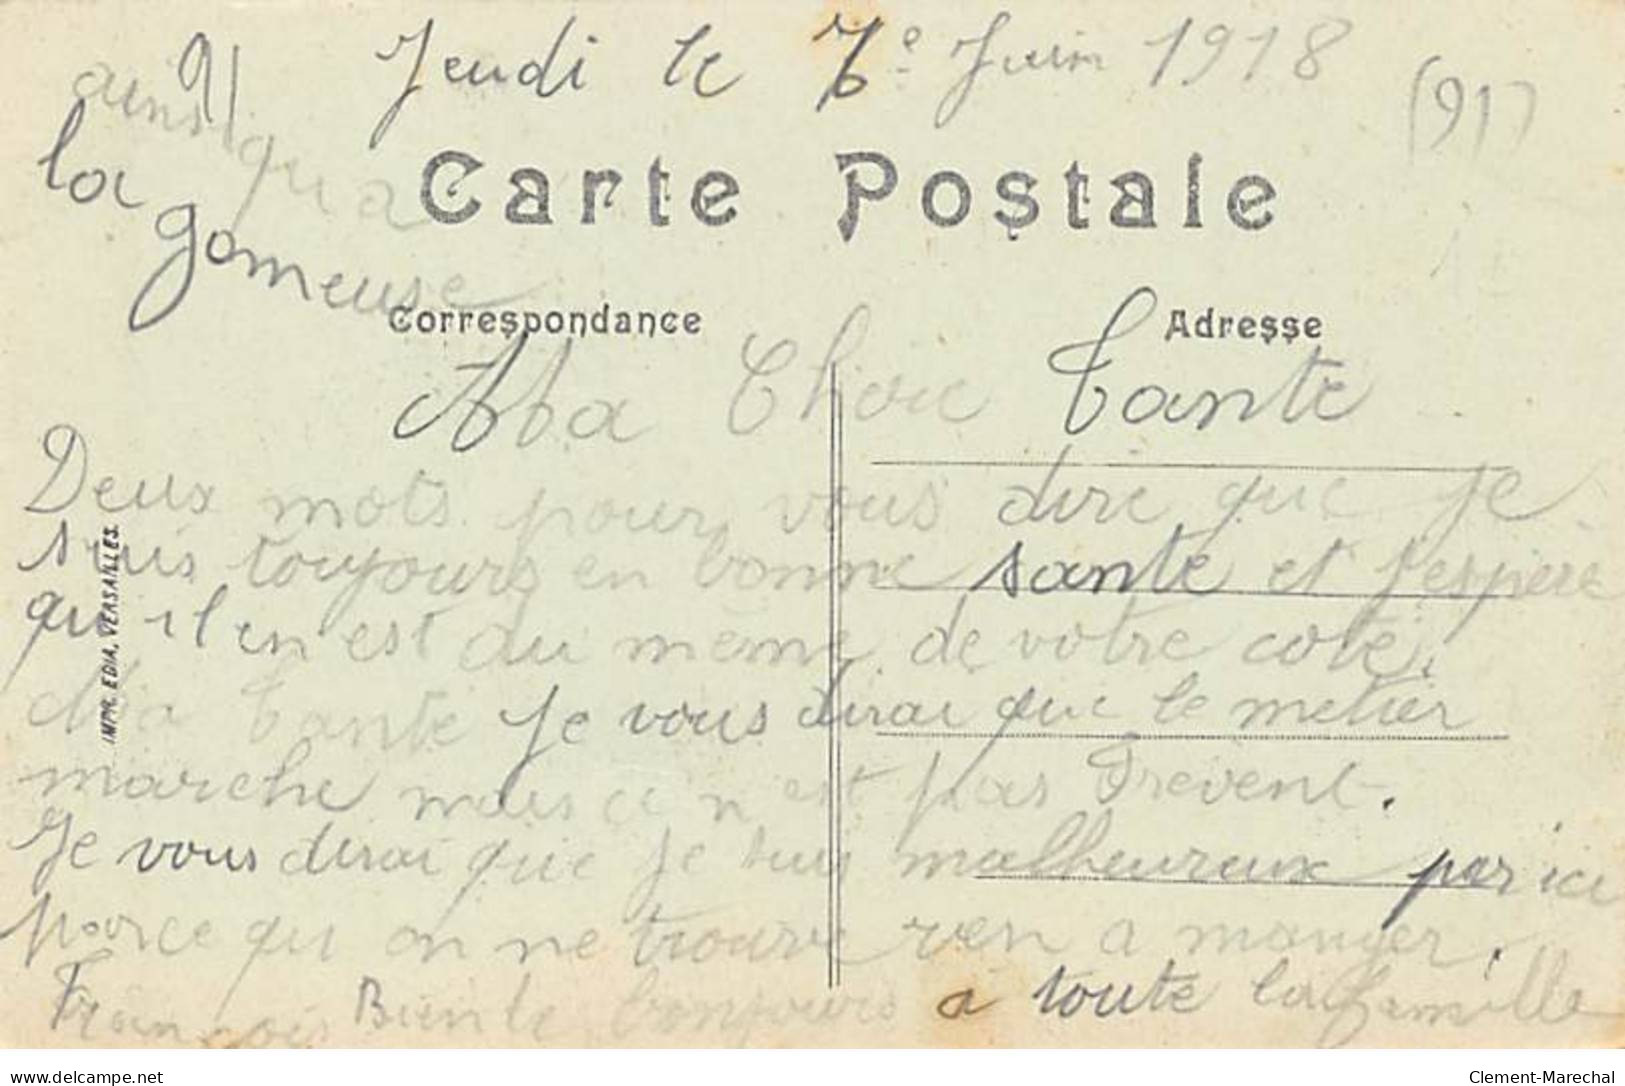 Jeudi le 6e Juin 1918
91
(91)
ainsi qua
la gomeuse
Carte Postale
Correspondance
Adresse
Ma Chere Tante
Deux mots pour vous dire que je
suis toujours en bonne sante et j'espère
qu'il en est du même de votre coté.
Ma Tante je vous dirai que le metier
marche mais ci n'est pas
Je vous dirai que je suis malheureux par ici
parce qu on ne trouve rien a manger.
François Biente bonjours a toute la famille
IMPR. EDIA, VERSAILLES.
delcampe.net
Clement-Marechal